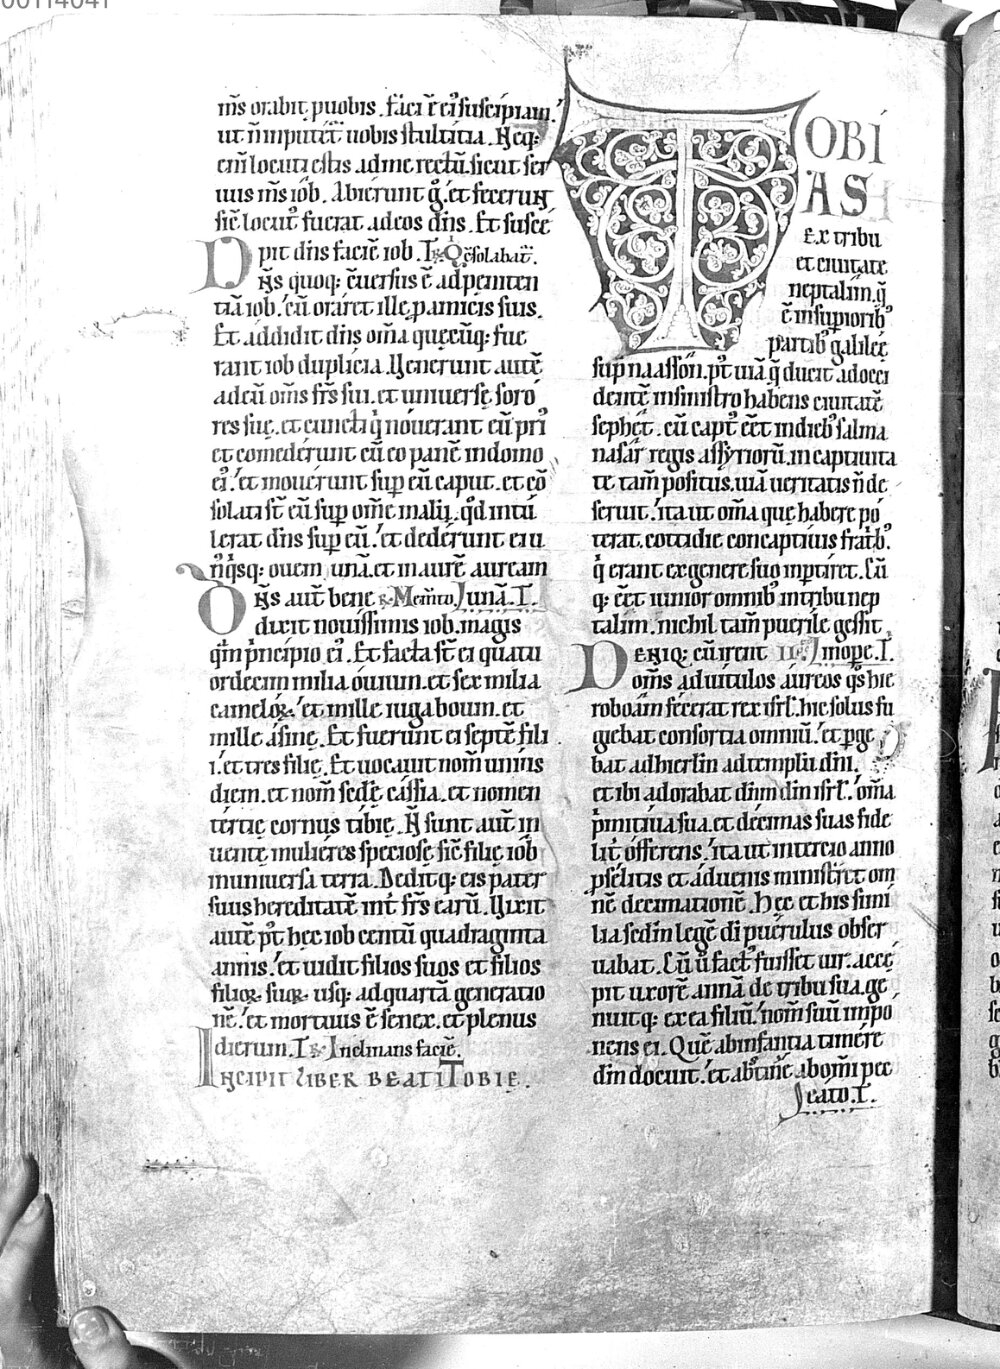 m̄s orabit p̱uobis. Faciē ei᷒ suscipiam.
ut n̄ imputet᷑ uobis stultitia. Neq;
eni᷒ locuti estis ad me rectū. sicut ser
uus m̄s iob. Abierunt g̊. et fecerunt
sic̄ locut᷒ fuerat ad eos dn̄s. Et susce
pit dn̄s faciē iob.
Dn̄s quoq; cōuersus ē ad peniten
tiā iob. cū oraret ille p̱ amicis suis.
Et addidit dn̄s om̄a quęcūq; fue
rant iob duplicia. Uenerunt autē
ad eū om̄s fr̄s sui. et uniuersę soro
res suę. et cuncti q̇ nouerant eū pri᷒
et comederunt cū eo panē in domo
ei᷒. et mouerunt sup̱ eū caput. et cō
solati st̄ eū sup̱ om̄e malū. qd̄ intu
lerat dn̄s sup̱ eū. et dederunt ei u
n᷒q̇sq; ouem unā. et in aurē auream
Dn̄s aut̄ bene unā. T.
dixit nouissimis iob. magis
qm̄ ṗncipio ei᷒. Et facta st̄ ei quatu
ordecim milia ouium. et sex milia
cameloꝝ. et mille iuga boum. et
mille asinę. Et fuerunt ei septē fili
i. et tres filię. Et uocauit nom̄ unius
diem. et nom̄ sedę cassia. et nomen
tertię cornus tibię. N̄ sunt aut̄ in
uentę mulieres speciosę sic̄ filię iob
in uniuersa terra. Deditq; eis pater
suus hereditatē int̄ fr̄s earū. Uixit
autē pt᷒ hęc iob centū quadraginta
annis. et uidit filios suos et filios
filioꝝ suoꝝ usq; ad quartā generatio
nē. et mortuus ē senex. et plenus
dierum. T. In elmans faciē.
INCIPIT LIBER BEATI TOBIE.
TOBI
AS
Ex tribu
et ciuitate
neptalim. q̄
ē in supiorib᷒
partib᷒ galileę
sup̱ naasson. pt᷒ uiā q̄ ducit ad occi
dentē in sinistro habens ciuitatē
sephet. cū capt᷒ eēt in dieb᷒ salma
nasar regis assyriorū. in captiuita
te tam̄ positus. uiā ueritatis n̄ de
seruit. ita ut om̄a quę habere po
terat. cottidie concaptiuis fratrib᷒
q̇ erant ex genere suo imptiret. Cū
q; eēt iunior omnib᷒ in tribu nep
talim. nichil tam̄ puerile gessit
Deniq; cū irent II. T.
om̄s ad uitulos aureos q᷒s hie
roboam fecerat rex isrl̄. hic solus fu
giebat consortia omniū. et p̱ge
bat ad hierl̄m ad templū dn̄i.
et ibi adorabat dn̄m dm̄ isrl̄. om̄a
ṗmitiua sua. et decimas suas fide
lit̄ offerens. ita ut in tercio anno
p̱selitis et aduenis ministraret om
nē decimationē. Hęc et his simi
lia sedm̄ legē di puerulus obser
uabat. Cū u᷒ fact᷒ fuisset uir. acce
pit uxorē annā de tribu sua. ge
nuitq; ex ea filiū. nom̄ suū impo
nens ei. Quē ab infantia timere
dm̄ docuit. et abstinē ab om̄i pec
cato. T.